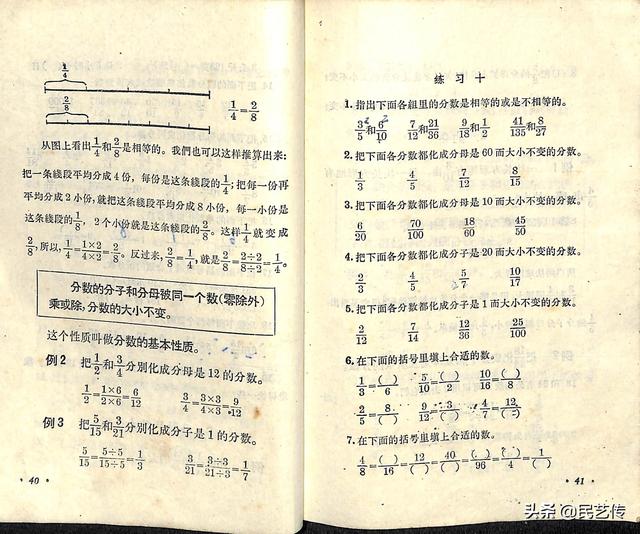 1/4
2/8
1/4=2/8
从图上看出1/4和2/8是相等的。我們也可以这样推算出来:
把一条綫段平均分成4份，每份是这条綫段的1/4;把每一份再
平均分成2小份,就把这条綫段平均分成8小份，每一小份是
这条綫段的1/8，2个小份就是这条綫段的2/8。这样1/4就变成
2/8,所以,1/4=1×2/4×2=2/8。反过来,2/8=1/4,就是2/8=2÷2/8÷2=1/4。
分数的分子和分母被同一个数(零除外)
乘或除,分数的大小不变。
这个性质叫做分数的基本性质。
例2 把1/2和3/4分别化成分母是12的分数。
1/2=1×6/2×6=6/12 3/4=3×3/4×3=9/12
例3 把5/15和3/21分别化成分子是1的分数。
5/15=5÷5/15÷5=1/3 3/21=3÷3/21÷3=1/7
·40·
练习十
1. 指出下面各組里的分数是相等的或是不相等的。
3/5和6/10 7/12和21/36 9/18和1/2 41/135和8/37
2. 把下面各分数都化成分母是60而大小不变的分数。
1/3 4/5 7/12 8/15
3. 把下面各分数都化成分母是10而大小不变的分数。
6/20 70/100 18/60 45/50
4. 把下面各分数都化成分子是20而大小不变的分数。
2/3 4/5 5/7 10/17
5. 把下面各分数都化成分子是1而大小不变的分数。
2/12 7/14 12/36 25/100
6. 在下面的括号里填上合适的数。
1/3=( )/6 5/10=( )/2 10/16=( )/8
2/5=8/( ) 9/12=3/( ) 4/7=12/( )
7. 在下面的括号里填上合适的数。
4/8=( )/16=12/( )=40/( )=( )/96=( )/4=1/( )
·41·
头条 @民艺传